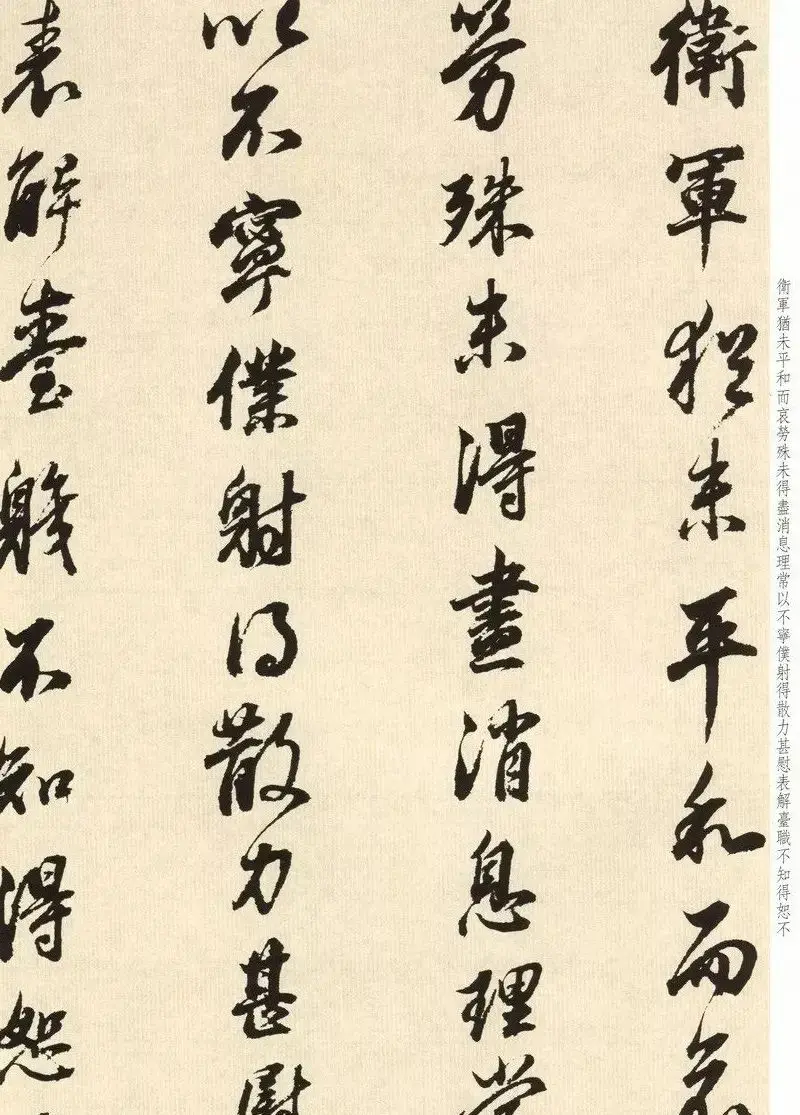 衛軍猶未平和而哀
勞殊未得盡消息理常
以不寧僕射得散力甚慰
表解臺職不知得恕不
衛軍猶未平和而哀勞殊未得盡消息理常以不寧僕射得散力甚慰表解臺職不知得恕不